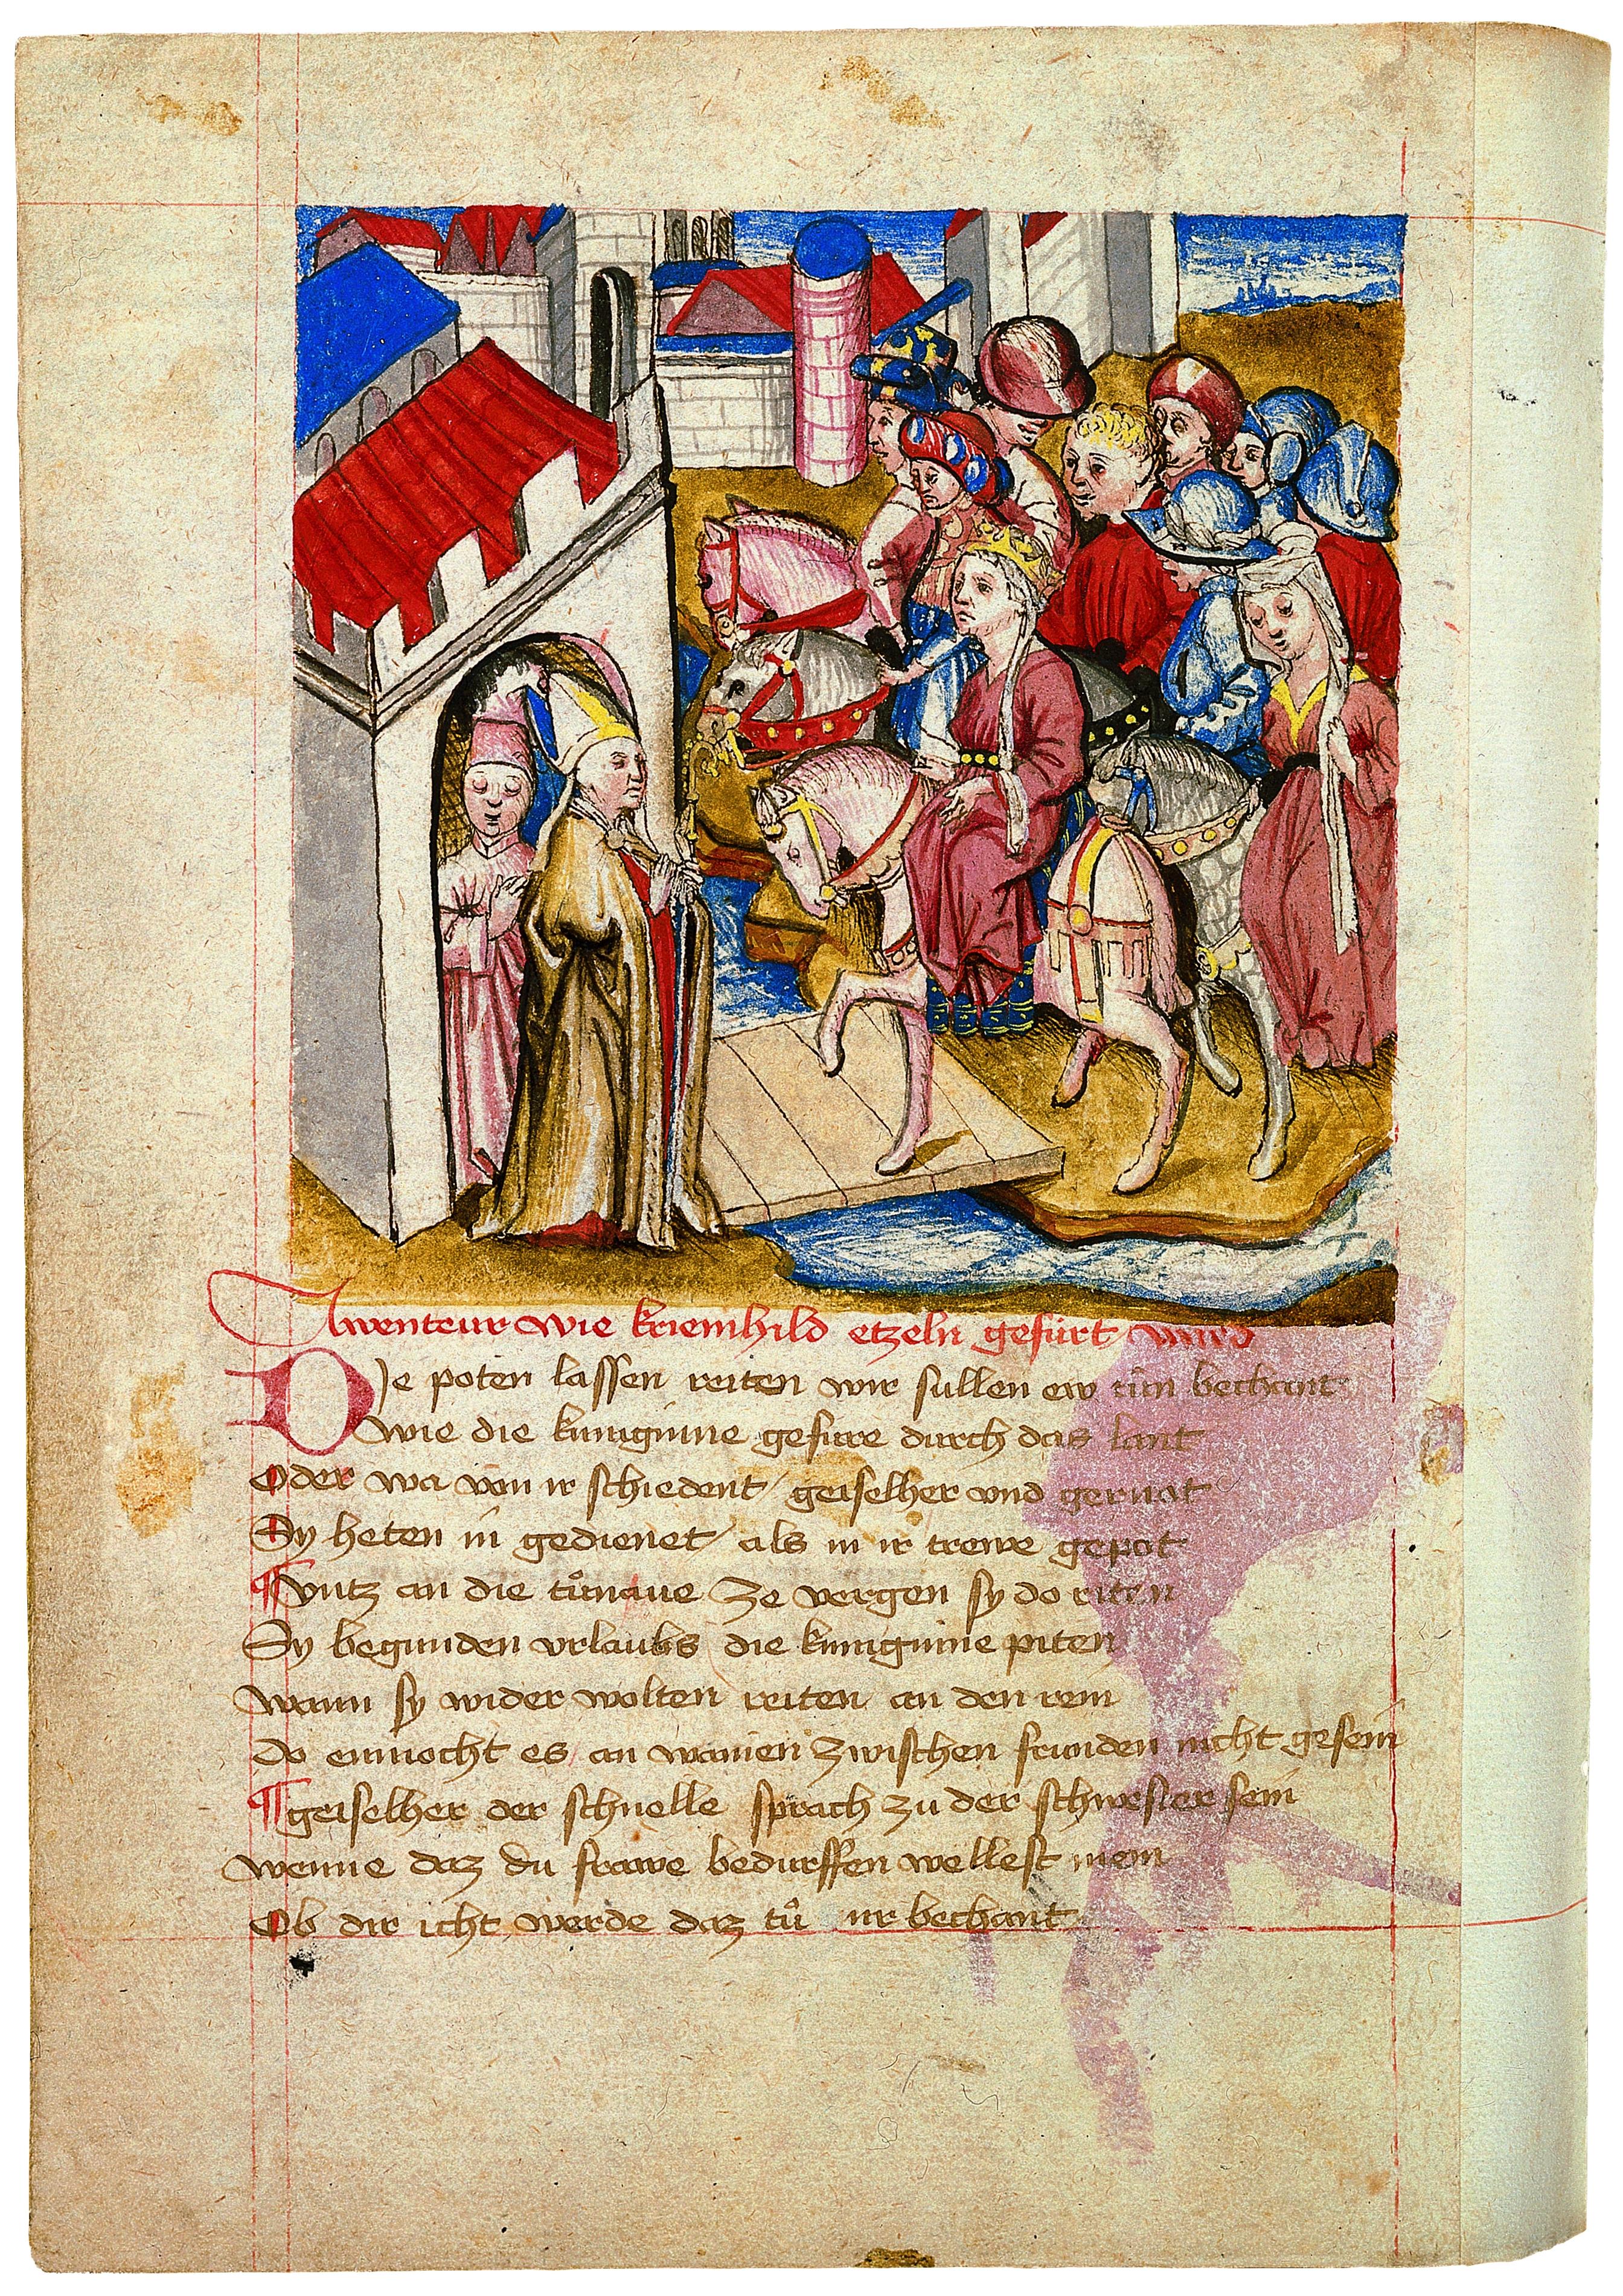 Awenteur wie kriemhild etzeln gefürt ward
Die poten lassen reiten wir sullen ew tůn bechant
wie die kuniginne gefure durch das lant
Oder wa von ir schiedent / geiselher vnd gernot
Sy heten in gedienet / als in ir trewe gepot
¶ Vntz an die tůnaue ze vergen sy do riten
Sy begunden vrlaubs die kuniginne piten
wann sy wider wolten reiten an den rein
Do enmocht es an wainen zwischen frunden nicht gesein
¶ geiselher der schnelle sprach zu der schwester sein
wenne daz du frawe bedurffen wellest mein
Ob dir icht werde daz tů mir bechant